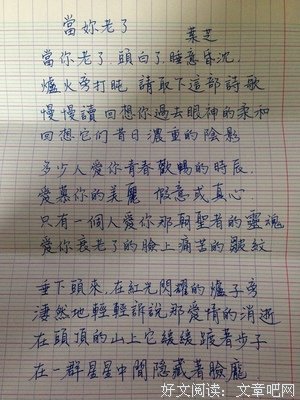 當妳老了
葉芝
當你老了,頭白了,睡意昏沈,
爐火旁打盹,請取下這部詩歌
慢慢讀回想你過去眼神的柔和
回想它們昔日濃重的陰影
多少人愛你青春歡暢的時辰,
愛慕你的美麗 假意或真心
只有一個人愛你那朝聖者的靈魂
愛你衰老了的臉上痛苦的皺紋
垂下頭來,在紅光閃耀的爐子旁
淒然地輕輕訴說那愛情的消逝
在頭頂的山上它緩緩踱著步子
在一群星星中間隱藏著臉龐
好文阅读:文章吧网